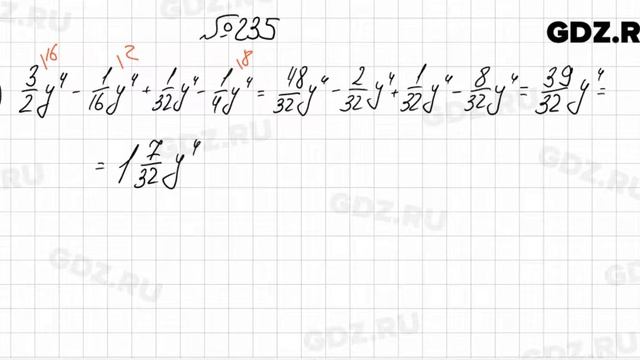 №235
GDZ.R
) 3/2 y⁴ - 1/16 y⁴ + 1/32 y⁴ - 1/4 y⁴ = 48/32 y⁴ - 2/32 y⁴ + 1/32 y⁴ - 8/32 y⁴ = 39/32 y⁴ =
16 2 8
= 1 7/32 y⁴
GDZ.RU
GDZ.RU
GDZ.RU
GDZ.RU